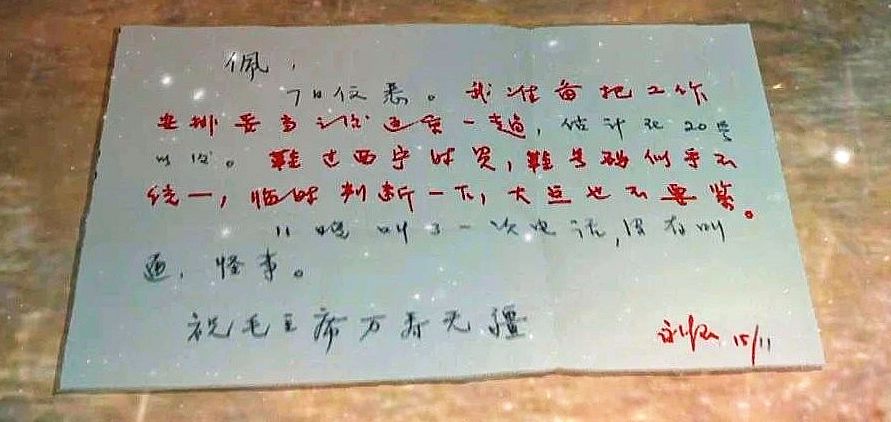 佩，
7日信悉。我准备把工作
安排妥当以后返京一趟，估计在20号
以后。鞋过西宁时买，鞋号码似乎不
统一，临时判断一下，大点也不要紧。
11晚叫了一次电话，没有叫
通，怪事。
祝毛主席万寿无疆
15/11